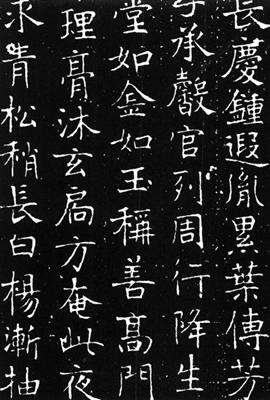 長慶鍾遐胤累葉傳芳
子承嗀官列周行降生
堂如金如玉稱善高門
理膏沐玄扃方奄此夜
求青松稍長白楊漸抽